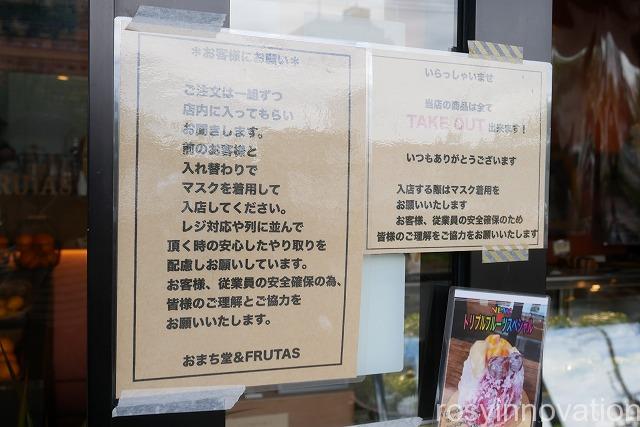 ＊お客様にお願い＊
ご注文は一組ずつ
店内に入ってもらい
お聞きします。
前のお客様と
入れ替わりで
マスクを着用して
入店してください。
レジ対応や列に並んで
頂く時の安心したやり取りを
配慮しお願いしています。
お客様、従業員の安全確保の為、
皆様のご理解とご協力を
お願いいたします。
おまち堂&FRUTAS
いらっしゃいませ
当店の商品は全て
TAKE OUT 出来ます！
いつもありがとうございます
入店する際はマスク着用を
お願いいたします
お客様、従業員の安全確保のため
皆様のご理解をご協力をお願いいたします
NEW
トリプルフルーツスペシャル
FRUTAS
rosyinnovation